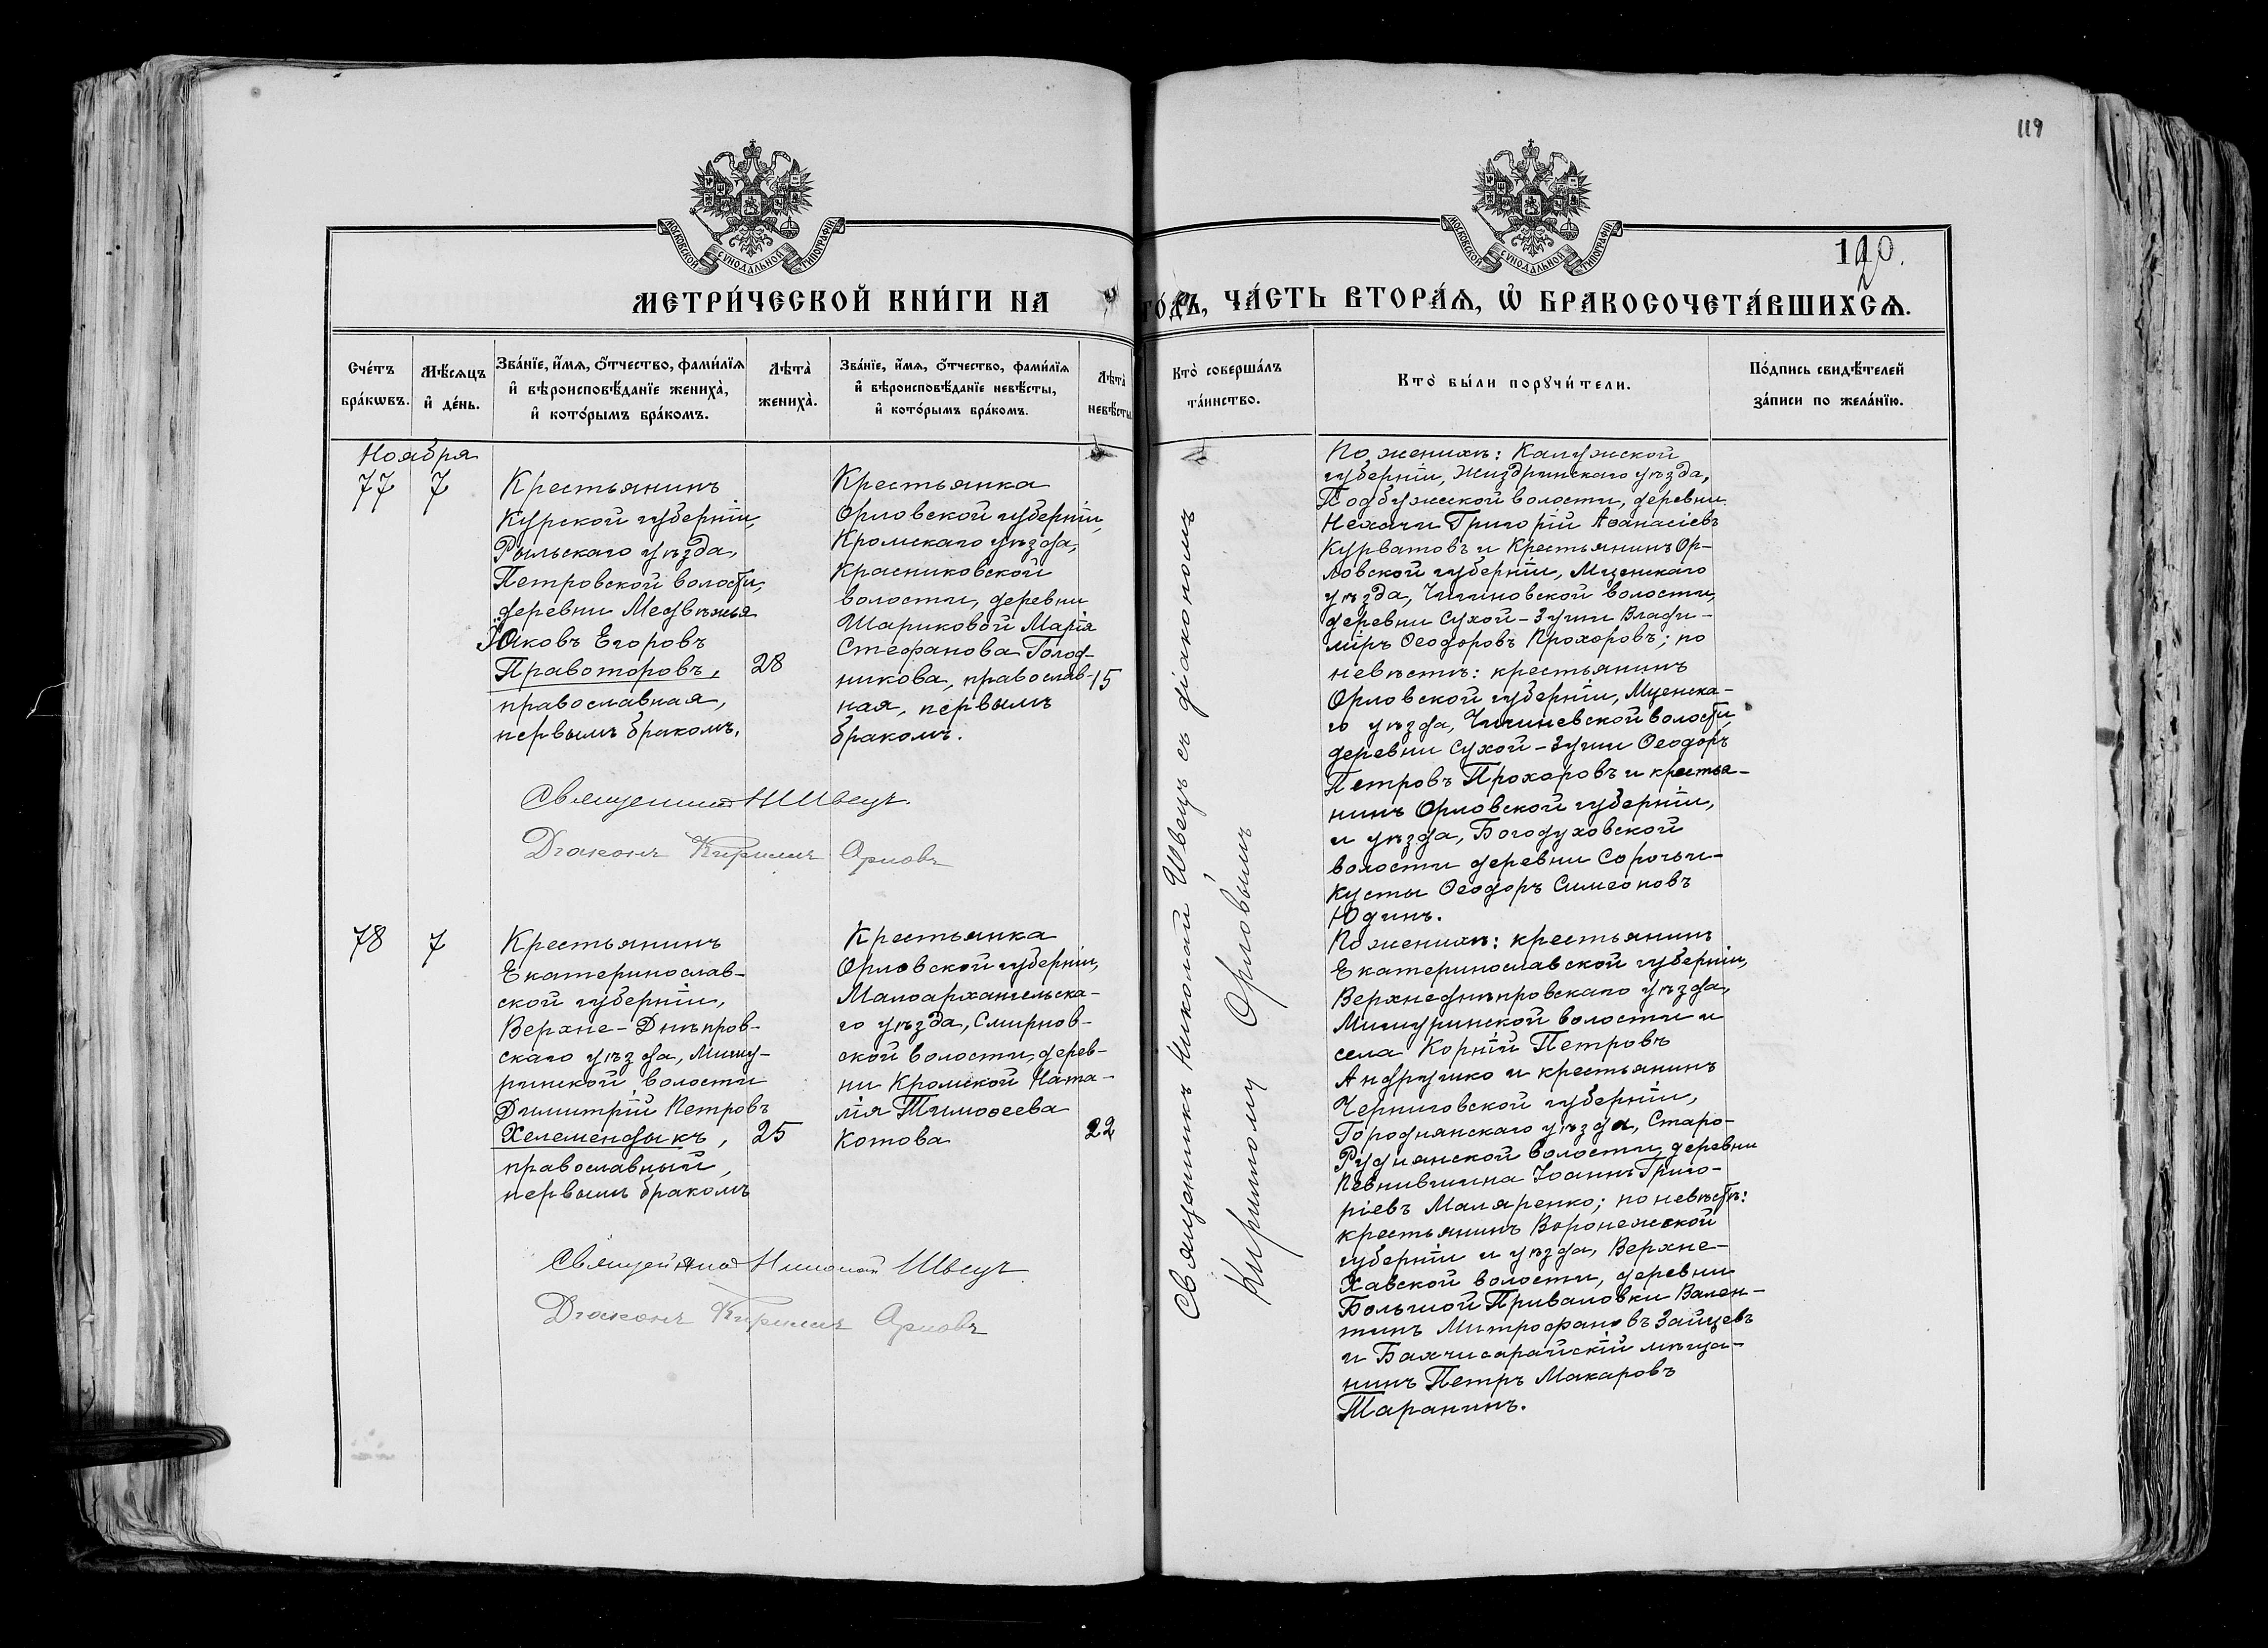 119
МОСКОВСКОЙ СѴНОДАЛЬНОЙ ТИПОГРАФІИ
МОСКОВСКОЙ СѴНОДАЛЬНОЙ ТИПОГРАФІИ
120.
МЕТРИ́ЧЕСКОЙ КНИ́ГИ НА
ГО́ДЪ, ЧА́СТЬ ВТОРА́Ѧ, Ѽ БРАКОСОЧЕТА́ВШИХСѦ.
Сче́тъ бра́кѡвъ.
Мѣ́сѧцъ и҆ де́нь.
Зва́нїе, и҆́мѧ, ѻ҆́тчество, фами́лїѧ
и҆ вѣроисповѣ́данїе жениха̀,
и҆ кото́рымъ бра́комъ.
Лѣта̀ жениха̀.
Зва́нїе, и҆́мѧ, ѻ҆́тчество, фами́лїѧ
и҆ вѣроисповѣ́данїе невѣ́сты,
и҆ кото́рымъ бра́комъ.
Лѣта̀ невѣ́сты
Кто̀ соверша́лъ
та́инство.
Кто̀ бы́ли порꙋчи́тели.
По́дпись свидѣ́телей
за́писи по жела́нїю.
Ноября
77 7
Крестьянинъ
Курской губерніи,
Рыльскаго уѣзда,
Петровской волости,
деревни Медвѣжья
Іаковъ Егоровъ
Правоторовъ,
православная,
первымъ бракомъ.
28
Крестьянка
Орловской губерніи,
Кромскаго уѣзда,
Красниковской
волости, деревни
Шариковой Марія
Стефанова Голод-
никова, православ-
ная, первымъ
бракомъ.
15
Священникъ Н Швецъ.
Діаконъ Кириллъ Орловъ
Священникъ Николай Швецъ съ діакономъ
Кириллому Орловымъ
По женихѣ: Калужской
губерніи, Жиздринскаго уѣзда,
Подбужской волости, деревни
Нехочи Григорій Аѳанасіевъ
Курватовъ и Крестьянинъ Ор-
ловской губерніи, Мценскаго
уѣзда, волости,
деревни Сухой-Зуши Влади-
міръ Ѳеодоровъ Прохоровъ; по
невѣстѣ: крестьянинъ
Орловской губерніи, Мценска-
го уѣзда, волости,
деревни Сухой-Зуши Ѳеодоръ
Петровъ Прохоровъ и крестья-
нинъ Орловской губерніи,
и уѣзда, Богодуховской
волости деревни Сорочьи-
Кусты Ѳеодоръ Симеоновъ
Юдинъ.
78 7
Крестьянинъ
Екатеринослав-
ской губерніи,
Верхне-Днѣпров-
скаго уѣзда, Мишу-
ринской волости
Димитрій Петровъ
Хелемендыкъ,
православный,
первымъ бракомъ
25
Крестьянка
Орловской губерніи,
Малоархангельска-
го уѣзда, Смирнов-
ской волости, дерев-
ни Кромской Ната-
лія Тимоѳеева
Котова
22
Священникъ Николай Швецъ
Діаконъ Кириллъ Орловъ
По женихѣ: крестьянинъ
Екатеринославской губерніи,
Верхнеднѣпровскаго уѣзда,
Мишуринской волости и
села Корній Петровъ
Андрушко и крестьянинъ
Черниговской губерніи,
Городнянскаго уѣзда, Старо-
Руднянской волости, деревни
Іоаннъ Григо-
ріевъ Маляренко; по невѣстѣ:
крестьянинъ Воронежской
губерніи и уѣзда, Верхне-
Хавской волости, деревни
Большой Приваловки Вален-
тинъ Митрофановъ Зайцевъ
и Бахчисарайскій мѣща-
нинъ Петръ Макаровъ
Таранинъ.